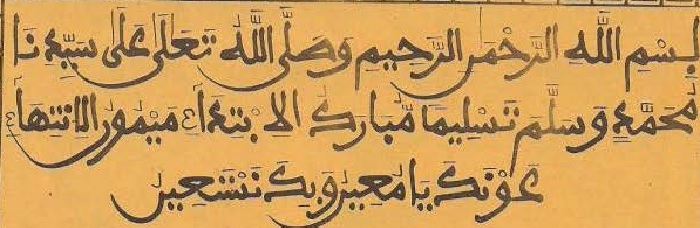 بِسْمِ اللَّهِ الرَّحْمٰنِ الرَّحِيمِ وَصَلَّى اللَّهُ تَعَلَى عَلَى سَيِّدِنَا
مُحَمَّدٍ وَسَلَّمَ تَسْلِيمًا مُّبَارَكُ الِابْتِدَاءِ مَيْمُونُ الِانْتِهَاءِ
بِعَوْنِكَ يَا مُعِينُ وَبِكَ نَسْتَعِينُ